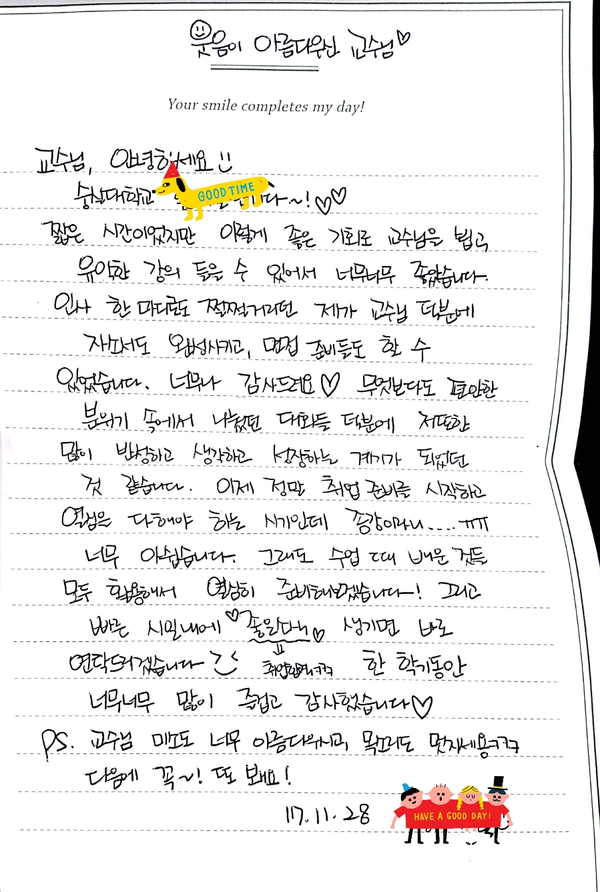 웃음이 아름다우신 교수님♡
Your smile completes my day!
교수님, 안녕하세요
숭실대학교 GOOD TIME 다~!♡♡
짧은 시간이었지만 이렇게 좋은 기회로 교수님을 뵙고
유익한 강의 들을 수 있어서 너무너무 좋았습니다.
인사 한 마디로도 쩔쩔거리던 제가 교수님 덕분에
자소서도 완성시키고, 면접 준비들도 할 수
있었습니다. 너무나 감사드려요♡ 무엇보다도 편안한
분위기 속에서 나눴던 대화들 덕분에 저또한
많이 반성하고 생각하고 성장하는 계기가 되었던
것 같습니다. 이제 정말 취업 준비를 시작하고
열심은 다해야 하는 시기인데 종강이라니....ㅠㅠ
너무 아쉽습니다. 그래도 수업 때 배운 것들
모두 활용해서 열심히 준비해보겠습니다! 그리고
빠른 시일내에 ♡좋은일♡ 생기면 바로
연락드리겠습니다 ㅋㅋ 한 학기동안
너무너무 많이 즐겁고 감사했습니다♡
PS. 교수님 미소도 너무 아름다우시고, 목소리도 멋지세용ㅋㅋㅋ
다음에 꼭~! 또 봬요!
17.11.28
HAVE A GOOD DAY!